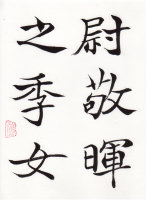 尉敬暉
之季女